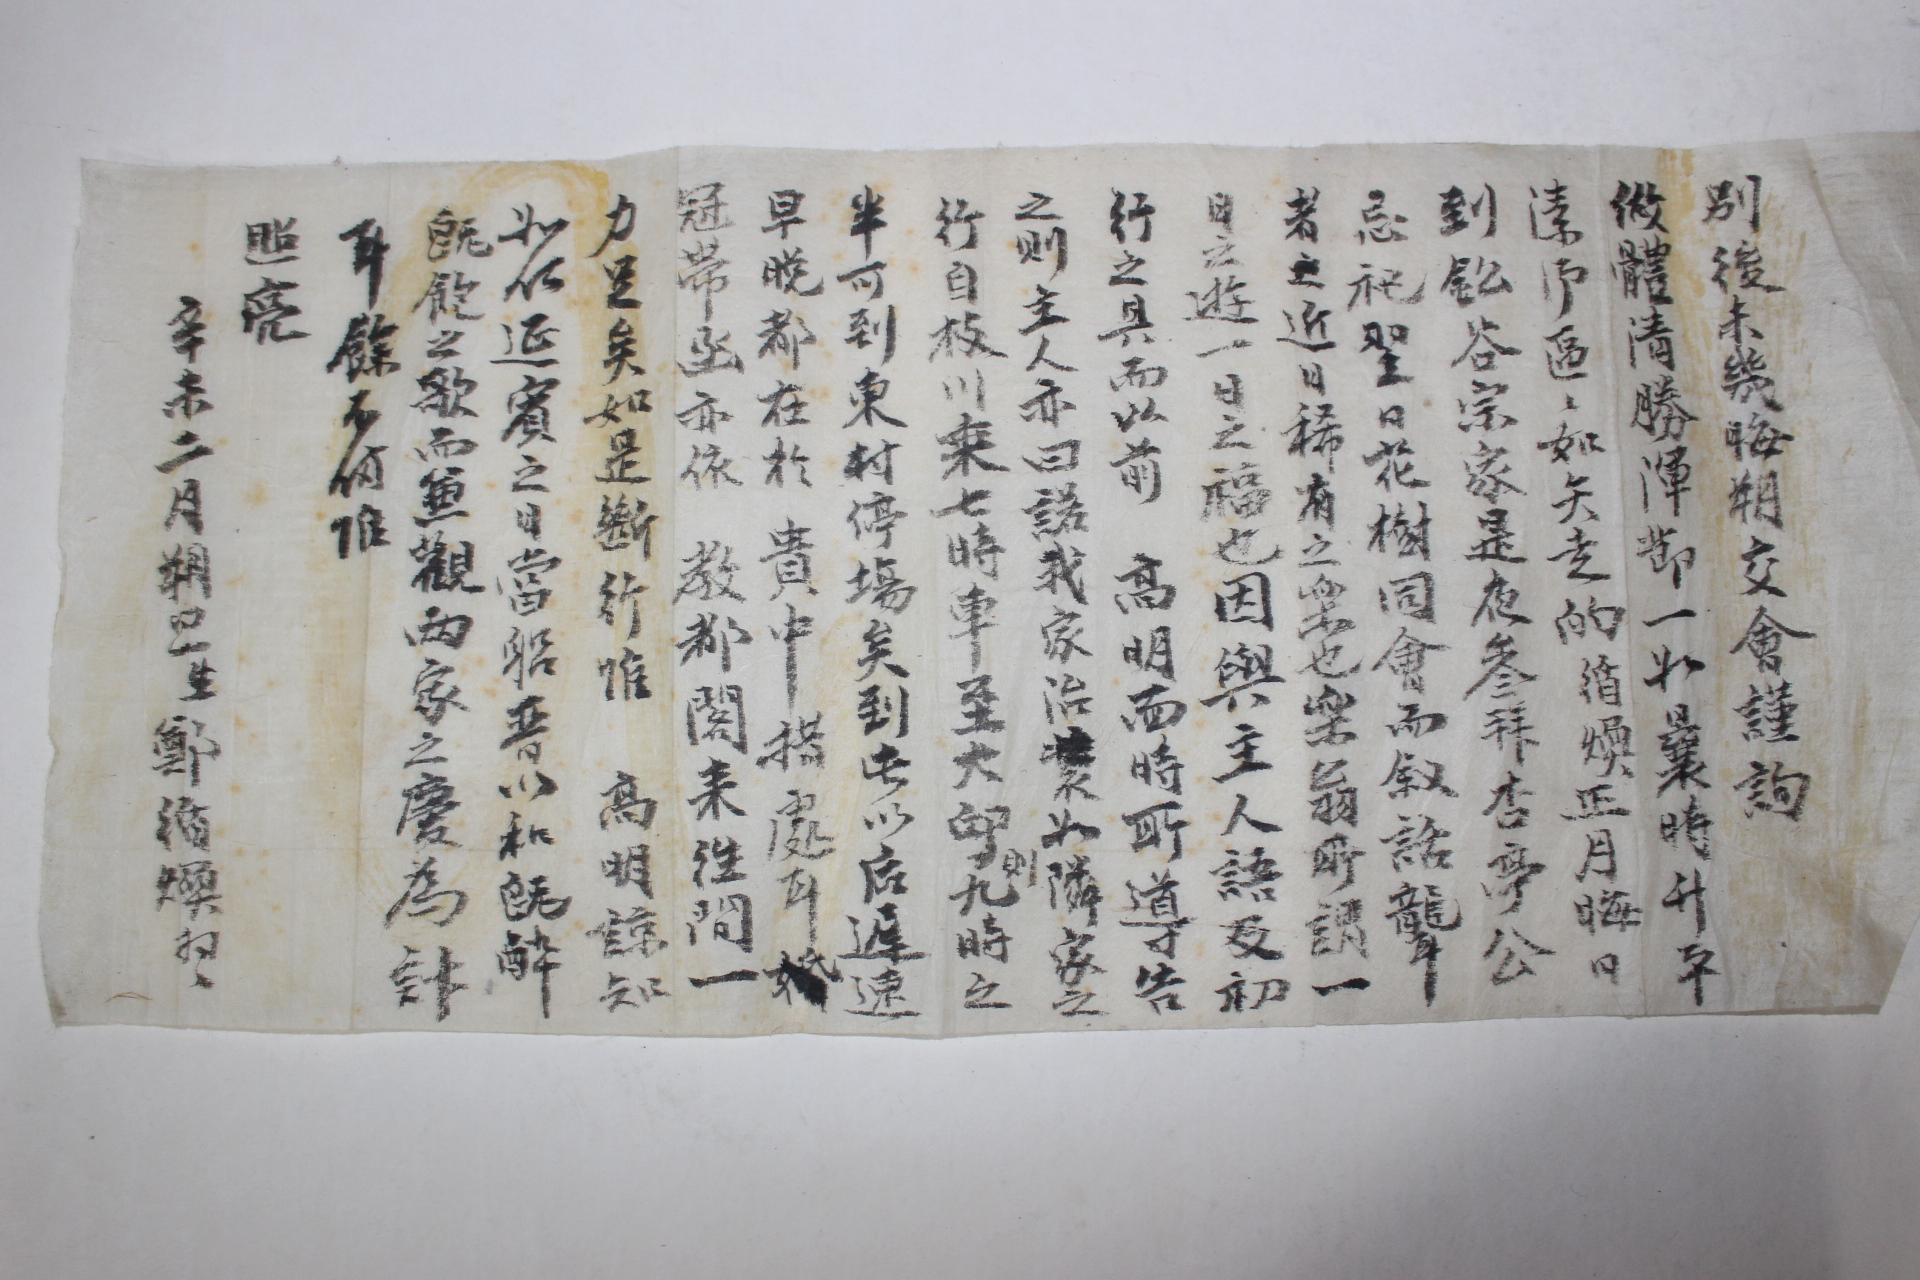 別後未幾晦朔交會謹詢
做體清勝渾節一如曩時升平
溱沛區〻如矢走的循煥正月晦日
到鈆谷宗家是夜叅拜杏亭公
忌祀翌日花樹同會而敍話龍耳
者之近日稀有之樂也樂翁所謂一
日之遊一日之福也因與主人語及初
行之具而以前 高明面時所導告
之則主人亦曰諾我家治裝如隣家之
行自枝川乘七時車至大邱則九時之
半可到東村停場矣到此以后遲速
早晚都在於 貴中措處耳
冠帶函亦依 教都閣来往間一
力足矣如是斷行惟 高明諒知
如何延賓之日當貽吾以和旣醉
旣飽之歌而兼觀兩家之慶爲計
耳餘不備惟
照亮
辛未二月朔日生鄭循煥